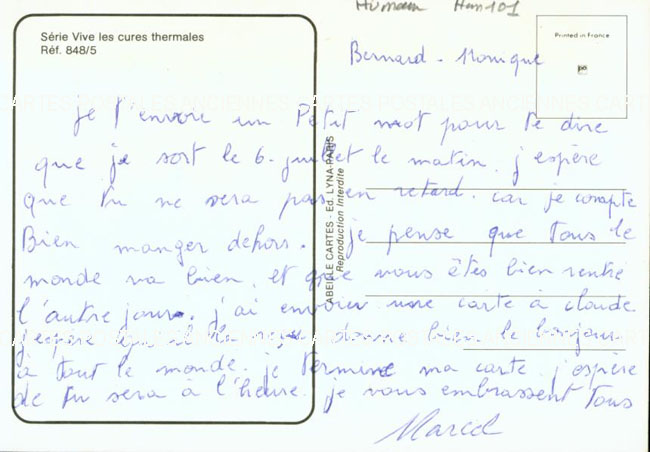 Humour Hum101
Série Vive les cures thermales
Réf. 848/5
Printed in France
Bernard - Monique
CARTES POSTALES ANCIENNES CARTES POSTALES ANCIENNES CART
je t'envoie un Petit mot pour te dire
que je sort le 6. juillet le matin. j'espère
que tu ne sera pas en retard. car je compte
Bien manger dehors. je pense que tous le
monde va bien. et que vous êtes bien rentré
l'autre jour. j'ai envoier une carte à claude
j'espère qu'il la donne bien le bonjour
à tout le monde. je termine ma carte. j'espère
de tu sera à l'heure. je vous embrassent tous
Marcel
ABEILLE CARTES - Ed. LYNA-PARIS
Reproduction Interdite